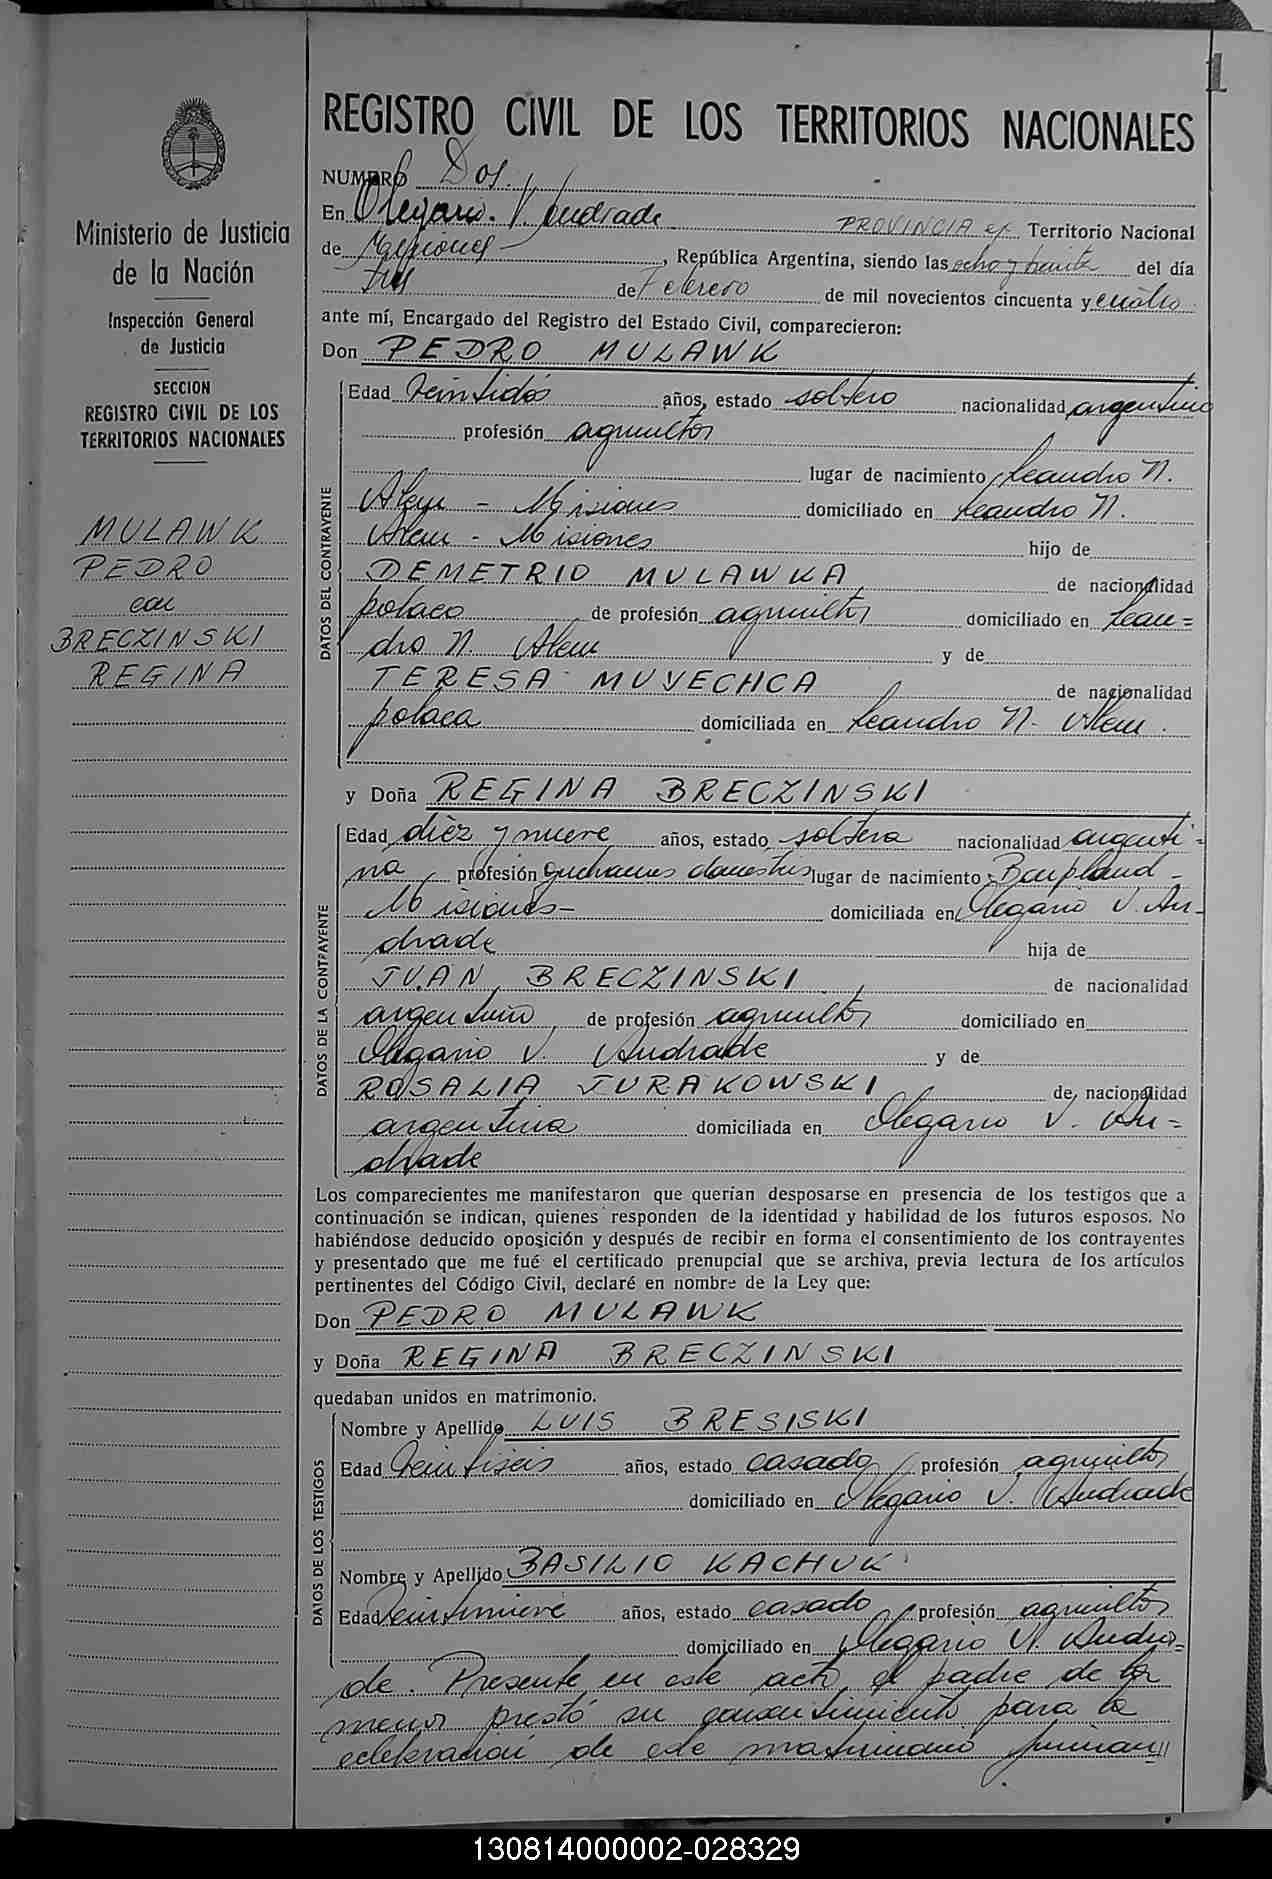 1
Ministerio de Justicia
de la Nación
Inspección General
de Justicia
SECCION
REGISTRO CIVIL DE LOS
TERRITORIOS NACIONALES
MULAWK
PEDRO
con
BRECZINSKI
REGINA
REGISTRO CIVIL DE LOS TERRITORIOS NACIONALES
NUMERO Dos.
En Olegario V. Andrade PROVINCIA ex Territorio Nacional
de Misiones, República Argentina, siendo las ocho y treinta del día
tres de Febrero de mil novecientos cincuenta y cuatro
ante mí, Encargado del Registro del Estado Civil, comparecieron:
Don PEDRO MULAWK
DATOS DEL CONTRAYENTE
Edad Veintidós años, estado soltero nacionalidad argentino
profesión agricultor
lugar de nacimiento Leandro N.
Alem - Misiones domiciliado en Leandro N.
Alem - Misiones hijo de
DEMETRIO MULAWKA de nacionalidad
polaco de profesión agricultor domiciliado en Lean=
dro N. Alem y de
TERESA MUYECHCA de nacionalidad
polaca domiciliada en Leandro N. Alem.
y Doña REGINA BRECZINSKI
DATOS DE LA CONTRAYENTE
Edad diez y nueve años, estado soltera nacionalidad argenti=
na profesión quehaceres domesticos lugar de nacimiento Bonpland -
Misiones - domiciliada en Olegario V. An-
drade hija de
JUAN BRECZINSKI de nacionalidad
argentino de profesión agricultor domiciliado en
Olegario V. Andrade y de
ROSALIA JURAKOWSKI de nacionalidad
argentina domiciliada en Olegario V. An=
drade
Los comparecientes me manifestaron que querían desposarse en presencia de los testigos que a
continuación se indican, quienes responden de la identidad y habilidad de los futuros esposos. No
habiéndose deducido oposición y después de recibir en forma el consentimiento de los contrayentes
y presentado que me fué el certificado prenupcial que se archiva, previa lectura de los artículos
pertinentes del Código Civil, declaré en nombre de la Ley que:
Don PEDRO MULAWK
y Doña REGINA BRECZINSKI
quedaban unidos en matrimonio.
DATOS DE LOS TESTIGOS
Nombre y Apellido LUIS BRESISKI
Edad Veintiseis años, estado casado profesión agricultor
domiciliado en Olegario V. Andrade
Nombre y Apellido BASILIO KACHUK
Edad Veintinueve años, estado casado profesión agricultor
domiciliado en Olegario V. Andra=
de. Presente en este acto el padre de la
menor prestó su consentimiento para la
celebración de este matrimonio firman//
130814000002-028329